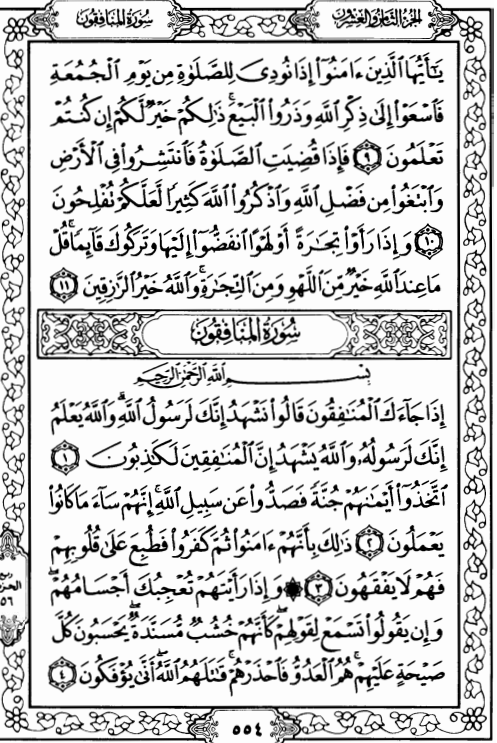 سُورَةُ المُنَافِقُونَ
الجُزْءُ الثَّامِنُ وَالعِشْرُونَ
يَٰٓأَيُّهَا ٱلَّذِينَ ءَامَنُوٓا۟ إِذَا نُودِىَ لِلصَّلَوٰةِ مِن يَوْمِ ٱلْجُمُعَةِ
فَٱسْعَوْا۟ إِلَىٰ ذِكْرِ ٱللَّهِ وَذَرُوا۟ ٱلْبَيْعَ ۚ ذَٰلِكُمْ خَيْرٌ لَّكُمْ إِن كُنتُمْ
تَعْلَمُونَ ٩ فَإِذَا قُضِيَتِ ٱلصَّلَوٰةُ فَٱنتَشِرُوا۟ فِى ٱلْأَرْضِ
وَٱبْتَغُوا۟ مِن فَضْلِ ٱللَّهِ وَٱذْكُرُوا۟ ٱللَّهَ كَثِيرًا لَّعَلَّكُمْ تُفْلِحُونَ
١٠ وَإِذَا رَأَوْا۟ تِجَٰرَةً أَوْ لَهْوًا ٱنفَضُّوٓا۟ إِلَيْهَا وَتَرَكُوكَ قَآئِمًا ۚ قُلْ
مَا عِندَ ٱللَّهِ خَيْرٌ مِّنَ ٱللَّهْوِ وَمِنَ ٱلتِّجَٰرَةِ ۚ وَٱللَّهُ خَيْرُ ٱلرَّٰزِقِينَ ١١
سُورَةُ المُنَافِقُونَ
بِسْمِ ٱللَّهِ ٱلرَّحْمَٰنِ ٱلرَّحِيمِ
إِذَا جَآءَكَ ٱلْمُنَٰفِقُونَ قَالُوا۟ نَشْهَدُ إِنَّكَ لَرَسُولُ ٱللَّهِ ۗ وَٱللَّهُ يَعْلَمُ
إِنَّكَ لَرَسُولُهُۥ وَٱللَّهُ يَشْهَدُ إِنَّ ٱلْمُنَٰفِقِينَ لَكَٰذِبُونَ ١
ٱتَّخَذُوٓا۟ أَيْمَٰنَهُمْ جُنَّةً فَصَدُّوا۟ عَن سَبِيلِ ٱللَّهِ ۚ إِنَّهُمْ سَآءَ مَا كَانُوا۟
يَعْمَلُونَ ٢ ذَٰلِكَ بِأَنَّهُمْ ءَامَنُوا۟ ثُمَّ كَفَرُوا۟ فَطُبِعَ عَلَىٰ قُلُوبِهِمْ
فَهُمْ لَا يَفْقَهُونَ ٣ ۞ وَإِذَا رَأَيْتَهُمْ تُعْجِبُكَ أَجْسَامُهُمْ ۖ
وَإِن يَقُولُوا۟ تَسْمَعْ لِقَوْلِهِمْ ۖ كَأَنَّهُمْ خُشُبٌ مُّسَنَّدَةٌ ۖ يَحْسَبُونَ كُلَّ
صَيْحَةٍ عَلَيْهِمْ ۚ هُمُ ٱلْعَدُوُّ فَٱحْذَرْهُمْ ۚ قَٰتَلَهُمُ ٱللَّهُ ۖ أَنَّىٰ يُؤْفَكُونَ ٤
ربع
الحزب
٥٦
٥٥٤